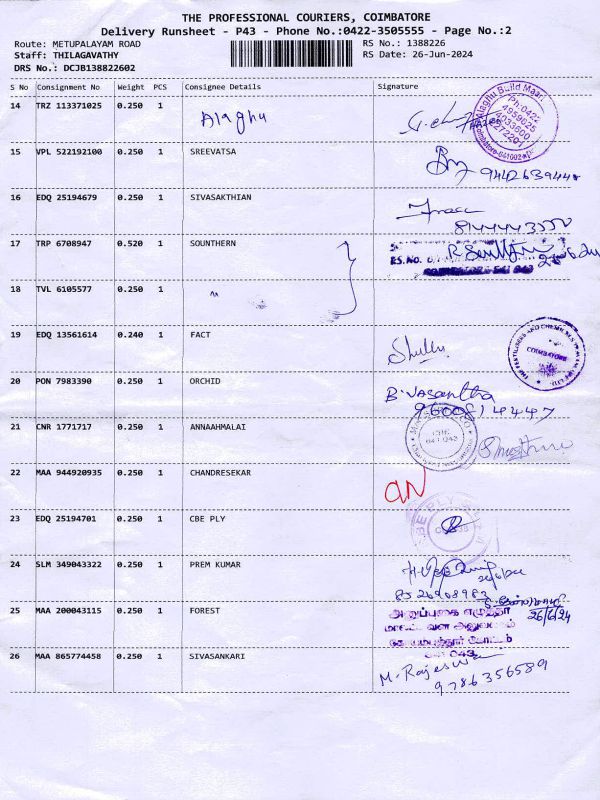 THE PROFESSIONAL COURIERS, COIMBATORE
Delivery Runsheet - P43 - Phone No.:0422-3505555 - Page No.:2
Route: METUPALAYAM ROAD RS No.: 1388226
Staff: THILAGAVATHY RS Date: 26-Jun-2024
DRS No.: DCJB138822602
S No Consignment No Weight PCS Consignee Details Signature
14 TRZ 113371025 0.250 1 Alaghu
Alaghu Build Maart
Ph:0422
4959625
4033600
15 VPL 522192100 0.250 1 SREEVATSA
16 EDQ 25194679 0.250 1 SIVASAKTHIAN
8144443550
17 TRP 6708947 0.520 1 SOUNTHERN
18 TVL 6105577 0.250 1 "
19 EDQ 13561614 0.240 1 FACT
COIMBATORE
20 PON 7983390 0.250 1 ORCHID
B. Vasantha
9600814447
21 CNR 1771717 0.250 1 ANNAAHMALAI
641 043
22 MAA 944920935 0.250 1 CHANDRESEKAR
23 EDQ 25194701 0.250 1 CBE PLY
24 SLM 349043322 0.250 1 PREM KUMAR
26/6/24
8526908983
25 MAA 200043115 0.250 1 FOREST
26/6/24
அனுப்புகை எழுத்தர்
மாவட்ட வன அலுவலகம்
கோயமுத்தூர் கோட்டம்
26 MAA 865774458 0.250 1 SIVASANKARI
M. Rajeswa
9786356589